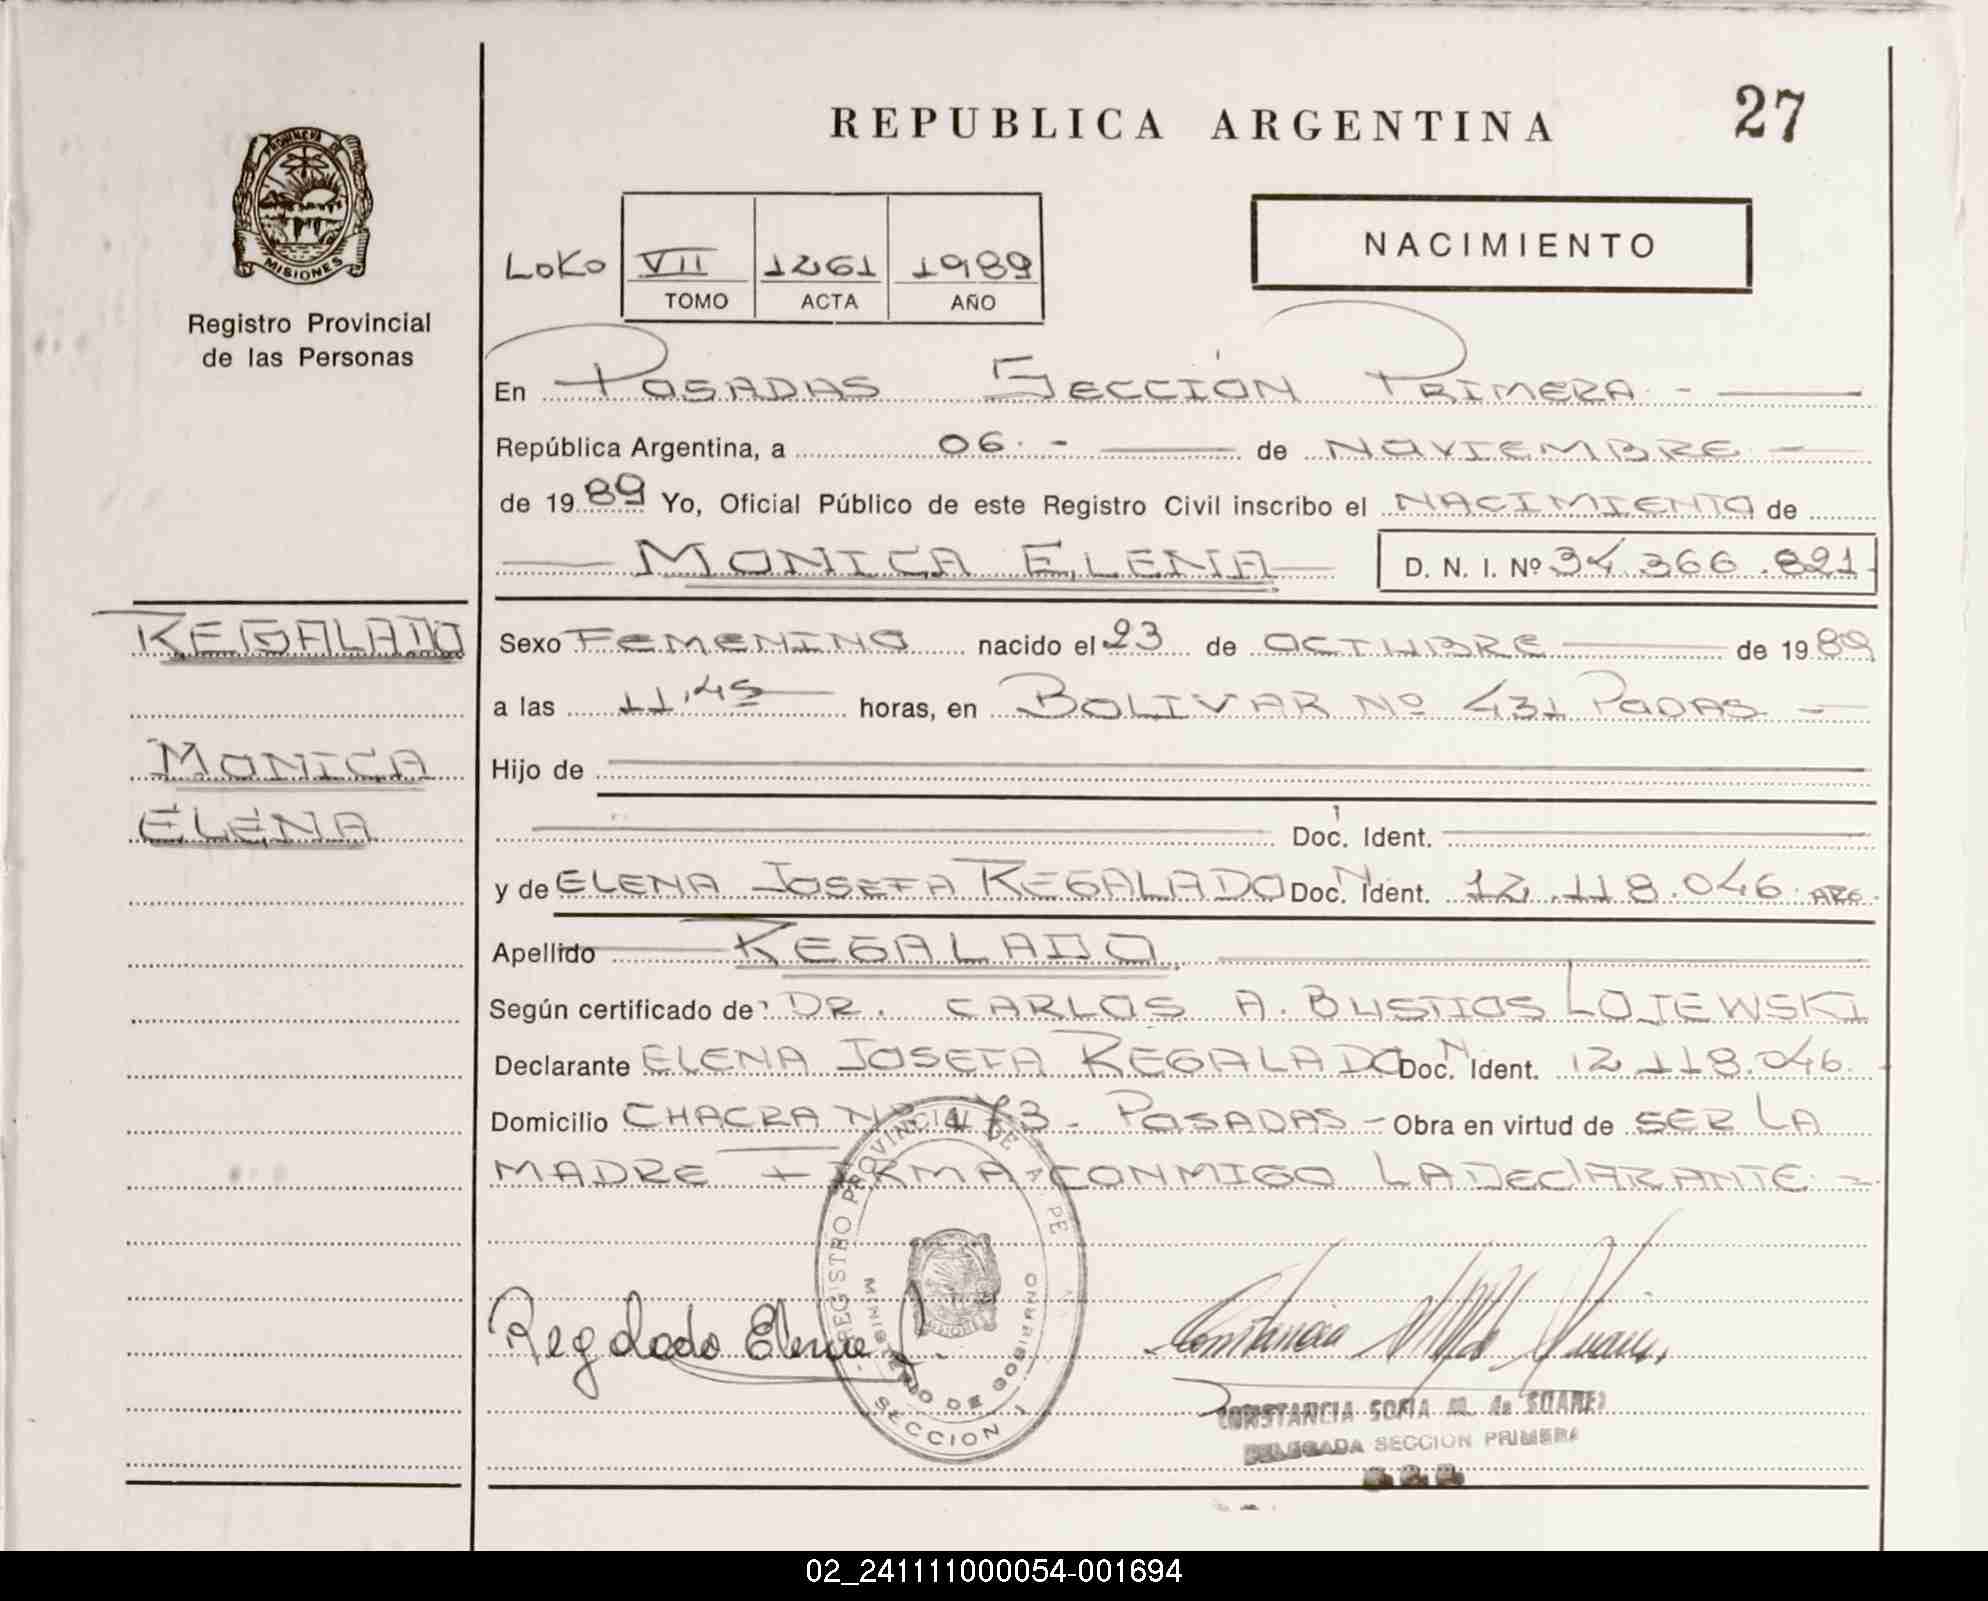 REPUBLICA ARGENTINA
27
PROVINCIA DE
MISIONES
Registro Provincial
de las Personas
NACIMIENTO
LOKO VII 1261 1989
TOMO ACTA AÑO
En POSADAS SECCIÓN PRIMERA.-
República Argentina, a 06.- de NOVIEMBRE -
de 1989 Yo, Oficial Público de este Registro Civil inscribo el NACIMIENTO de
MONICA ELENA D. N. I. Nº 34.366.821-
REGALADO
MONICA
ELENA
Sexo FEMENINO nacido el 23 de OCTUBRE de 1989
a las 11,45 horas, en BOLIVAR Nº 431 PODAS -
Hijo de
Doc. Ident.
y de ELENA JOSEFA REGALADO Doc. N Ident. 12.118.046. ARG.
Apellido REGALADO.
Según certificado de: DR. CARLOS A. BUSTIOS LOJEWSKI
Declarante ELENA JOSEFA REGALADO Doc. N Ident. 12.118.046.
Domicilio CHACRA Nº 173 - POSADAS - Obra en virtud de SER LA
MADRE FIRMA CONMIGO LA DECLARANTE.-
Regalado Elena J.
REGISTRO PROVINCIAL DE
MINISTERIO DE GOBIERNO
SECCION 1
CONSTANCIA SOFIA M. de SUAREZ
DELEGADA SECCION PRIMERA
02_241111000054-001694